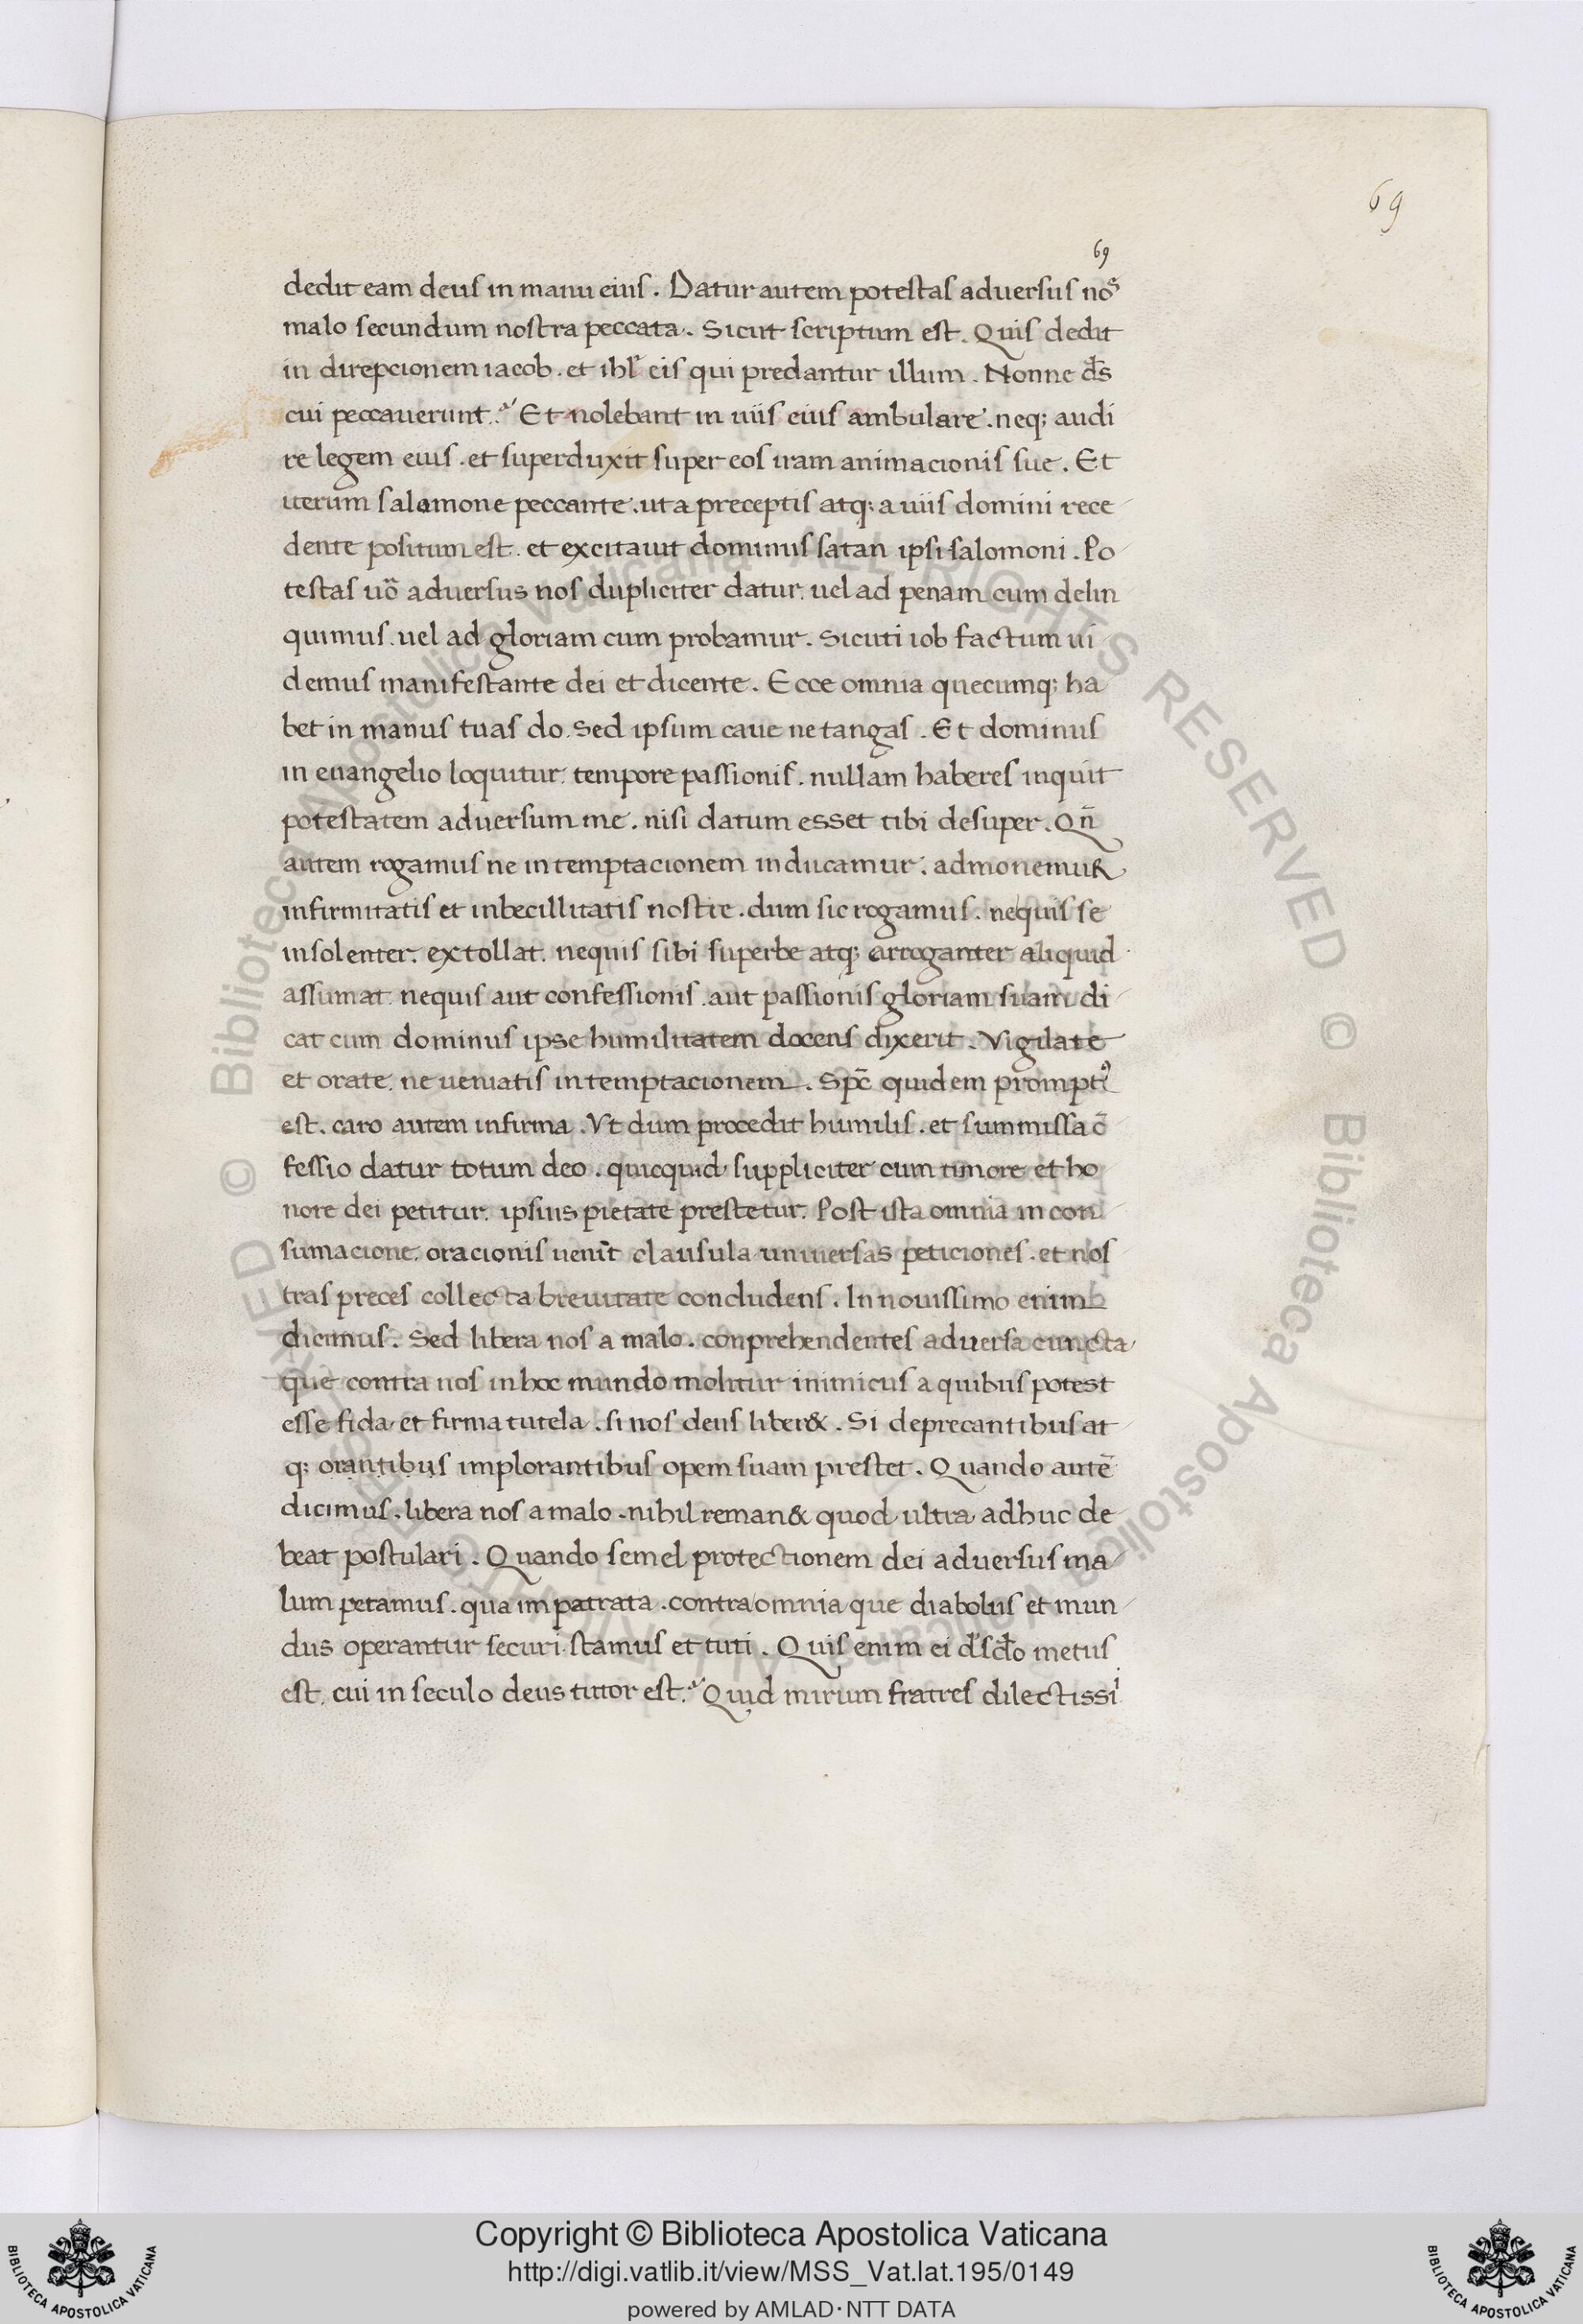 69
69
dedit eam deus in manu eius . Datur autem potestas aduersus nos
malo secundum nostra peccata . Sicut scriptum est . Quis dedit
in direpcionem iacob . et ihl' eis qui predantur illum . Nonne ds̄
cui peccauerunt .? Et nolebant in uiis eius ambulare . neq; audi
re legem eius . et superduxit super eos iram animacionis sue . Et
iterum salamone peccante . ut a preceptis atq; a uiis domini rece
dente positum est . et excitauit dominus satan ipsi salomoni . Po
testas uō aduersus nos dupliciter datur . uel ad penam cum delin
quimus . uel ad gloriam cum probamur . Sicuti iob factum ui
demus manifestante dei et dicente . Ecce omnia quecumq; ha
bet in manus tuas do . Sed ipsum caue ne tangas . Et dominus
in euangelio loquitur . tempore passionis . nullam haberes inquit
potestatem aduersum me . nisi datum esset tibi desuper . Qn̄
autem rogamus ne in temptacionem inducamur . admonemur
infirmitatis et inbecillitatis nostre . dum sic rogamus . nequis se
insolenter . extollat . nequis sibi superbe atq; arroganter aliquid
assumat . nequis aut confessionis . aut passionis gloriam suam di
cat cum dominus ipse humilitatem docens dixerit . Vigilate
et orate . ne ueniatis in temptacionem . Spc̄ quidem prompt᾽
est . caro autem infirma . Vt dum procedit humilis . et summissa c̄
fessio datur totum deo . quicquid suppliciter cum timore et ho
nore dei petitur . ipsius pietate prestetur . Post ista omnia in con
sumacione . oracionis uenit clausula uniuersas peticiones . et nos
tras preces collecta breuitate concludens . In nouissimo enim
dicimus . Sed libera nos a malo . conprehendentes aduersa cuncta
que contra nos in hoc mundo molitur inimicus a quibus potest
esse fida et firma tutela . si nos deus liber& . Si deprecantibus at
q; orantibus implorantibus opem suam prestet . Quando autē
dicimus . libera nos a malo . nihil reman& quod ultra adhuc de
beat postulari . Quando semel protectionem dei aduersus ma
lum petamus . qua impatrata . contra omnia que diabolus et mun
dus operantur securi stamus et tuti . Quis enim ei d'scl̄o metus
est . cui in seculo deus tutor est .? Quid mirum fratres dilectissi
© Biblioteca Apostolica Vaticana ALL RIGHTS RESERVED © Biblioteca Apostolica Vaticana ALL RIGHTS RESERVED
Copyright © Biblioteca Apostolica Vaticana
http://digi.vatlib.it/view/MSS_Vat.lat.195/0149
powered by AMLAD·NTT DATA
BIBLIOTECA APOSTOLICA VATICANA
BIBLIOTECA APOSTOLICA VATICANA